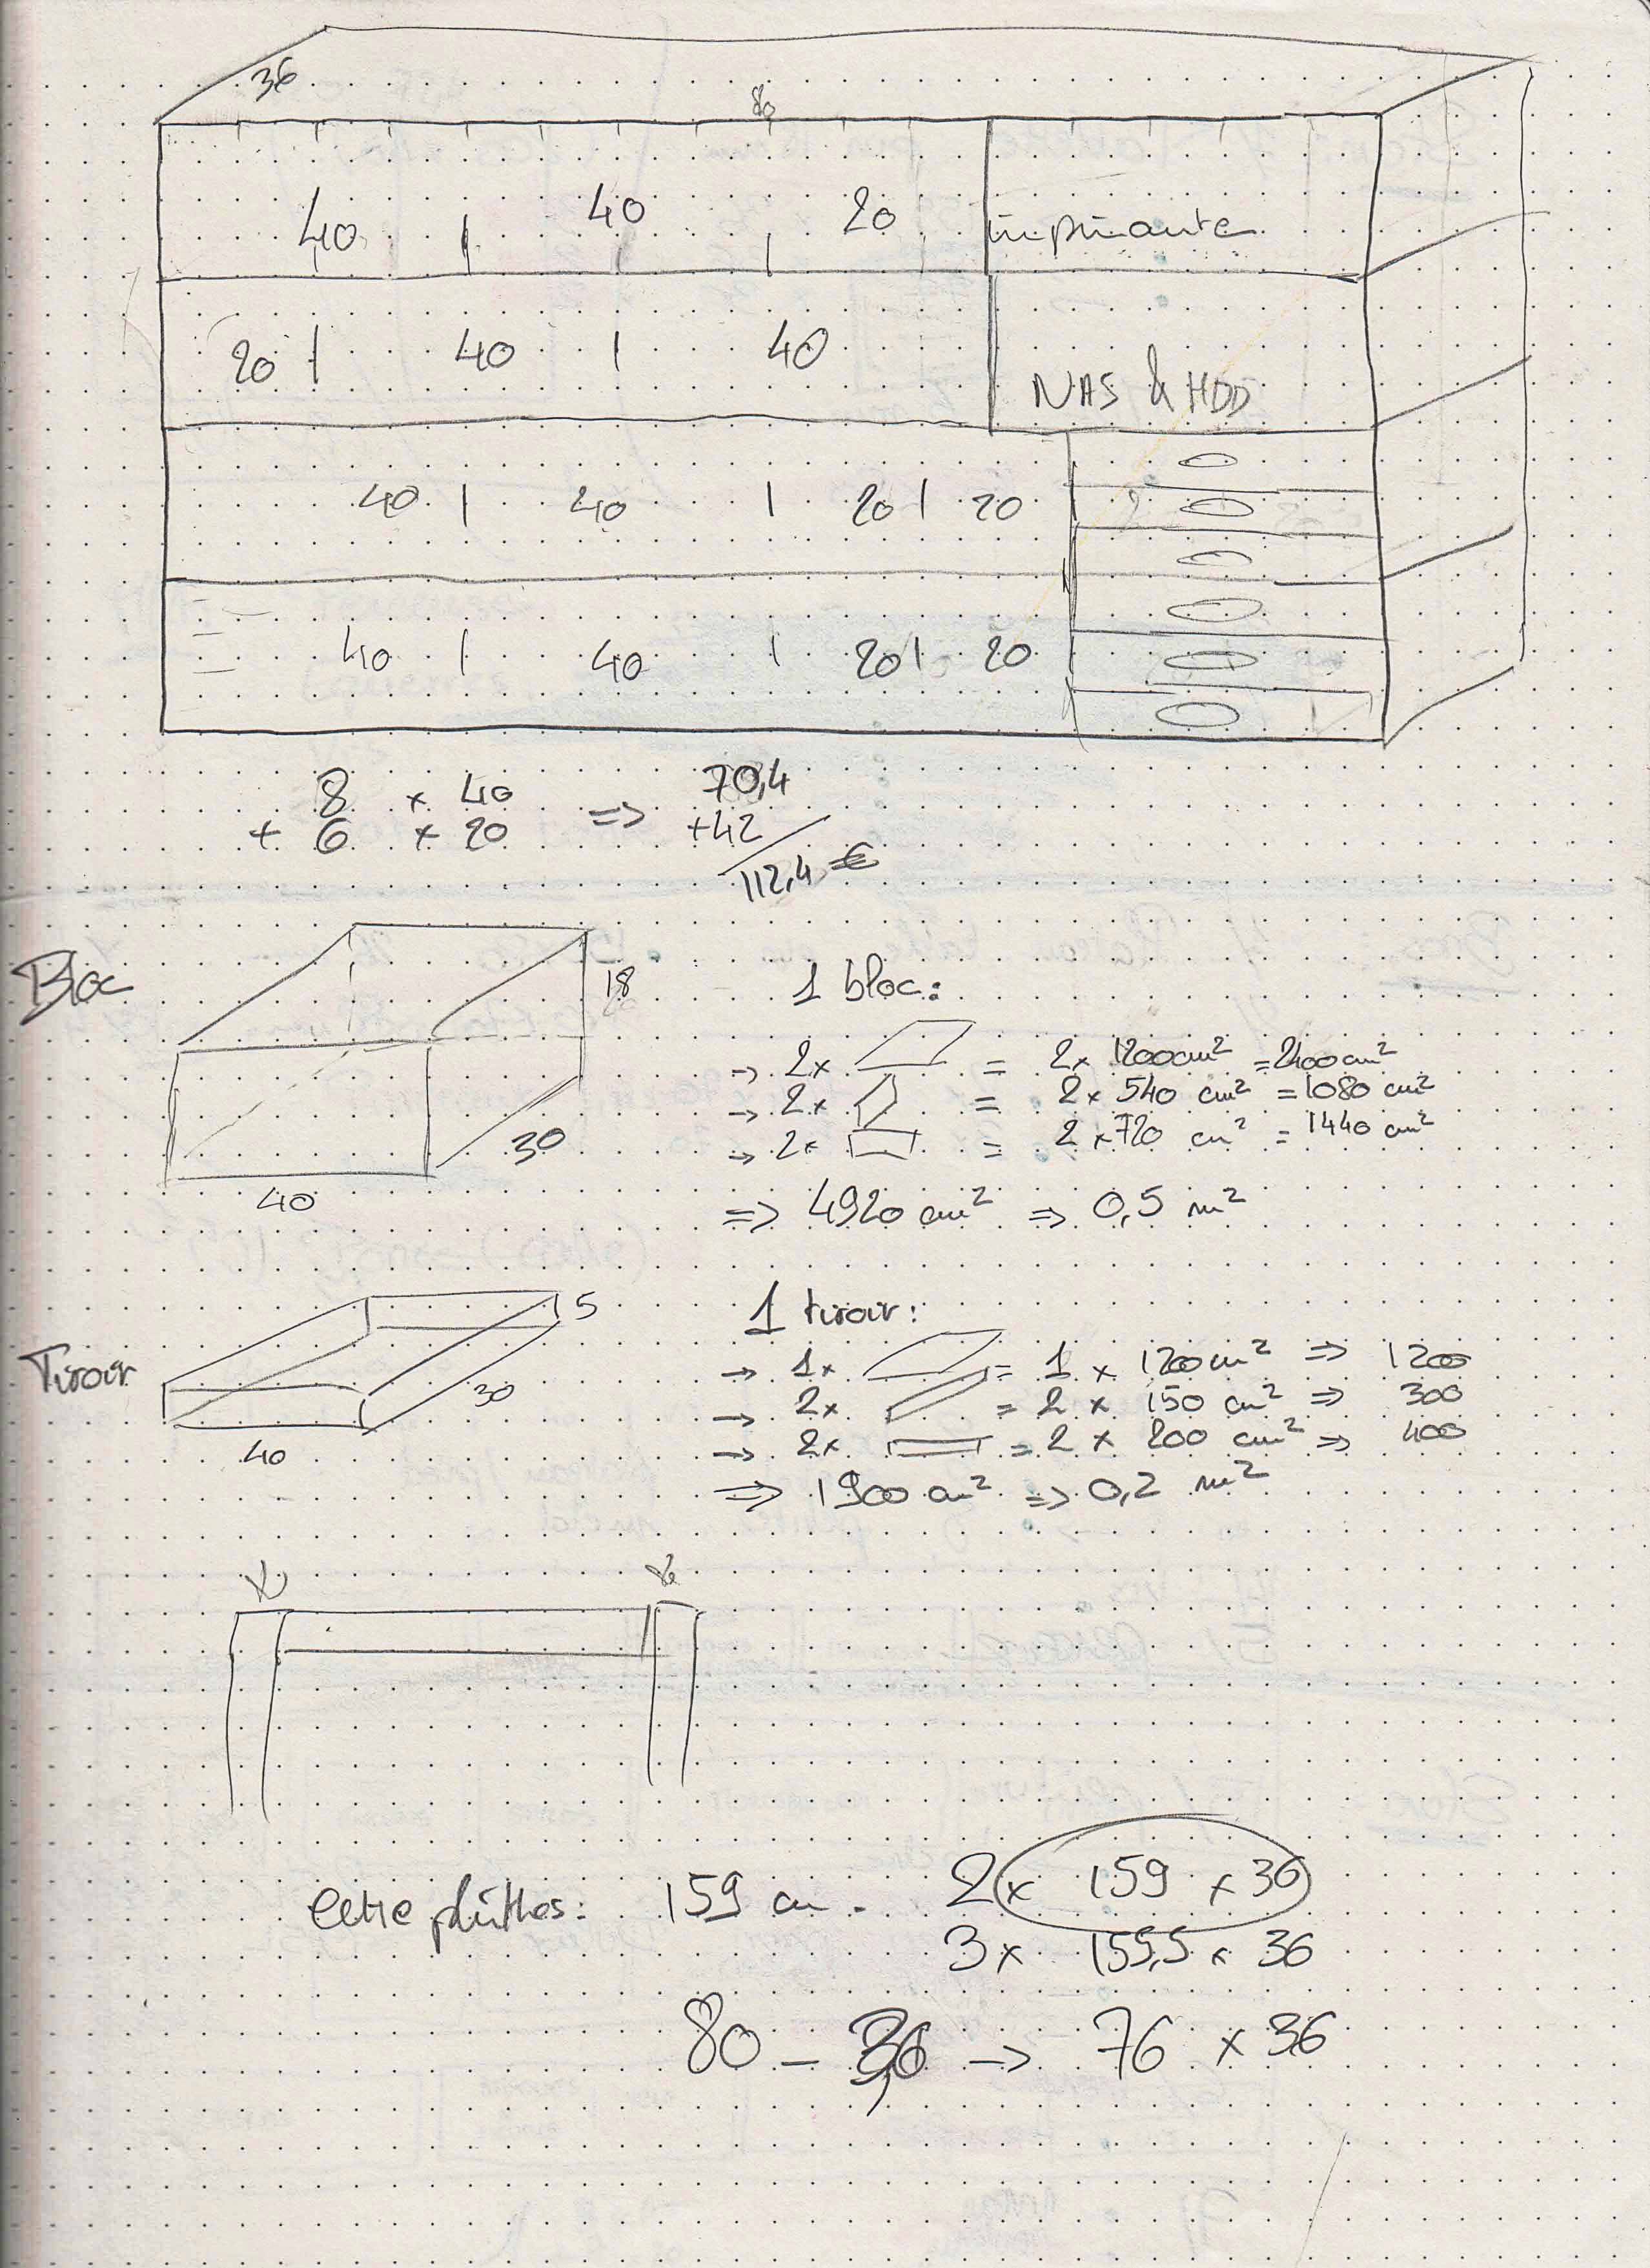 36
80
40 | 40 | 20 imprimante
20 | 40 | 40 NAS & HDD
40 | 40 | 20 | 20
40 | 40 | 20 | 20
8 x 40 => 70,4
+ 6 x 20 +42
112,4 €
Bloc
18
30
40
1 bloc:
→ 2x = 2x 1200cm² = 2400cm²
→ 2x = 2x 540 cm² = 1080 cm²
→ 2x = 2 x 720 cm² = 1440 cm²
=> 4920 cm² => 0,5 m²
Tiroir
5
30
40
1 tiroir:
→ 1x = 1 x 1200cm² => 1200
→ 2x = 2 x 150 cm² => 300
→ 2x = 2 x 200 cm² => 400
=> 1900 cm² => 0,2 m²
entre plinthes: 159 cm. 2 x 159 x 36
3 x 155,5 x 36
80 - 3,6 → 76 x 36